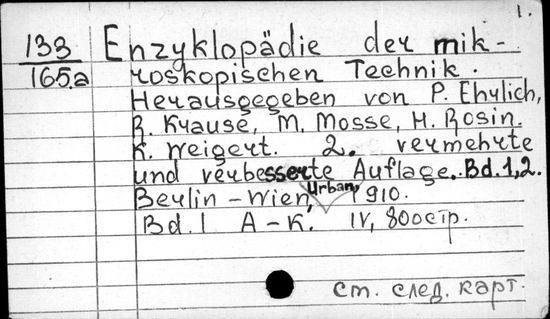 1.
133 Enzyklopädie der mik-
165a roskopischen Technik.
Herausgegeben von P. Ehrlich,
R. Krause, M. Mosse, H. Rosin.
K. Weigert. 2. vermehrte
und verbesserte Auflage. Bd. 1,2.
Berlin – Wien, Urban, 1910.
Bd. I A – K. IV, 800 стр.
ст. след. карт.